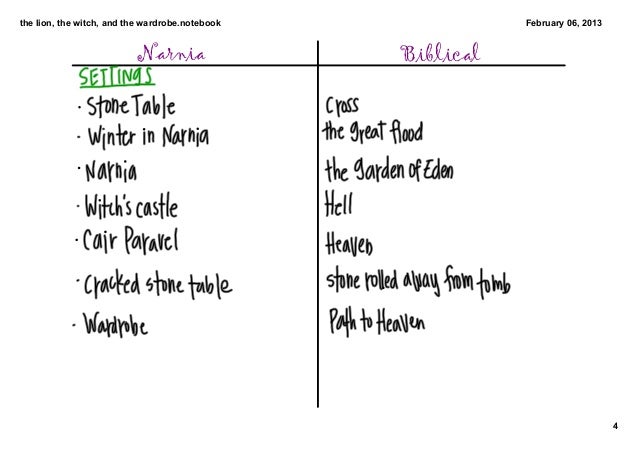 the lion, the witch, and the wardrobe.notebook February 06, 2013
Narnia Biblical
SETTINGS
· Stone Table Cross
· Winter in Narnia the great flood
· Narnia the garden of Eden
· Witch's castle Hell
· Cair Paravel Heaven
· Cracked stone table stone rolled away from tomb
· Wardrobe Path to Heaven
4